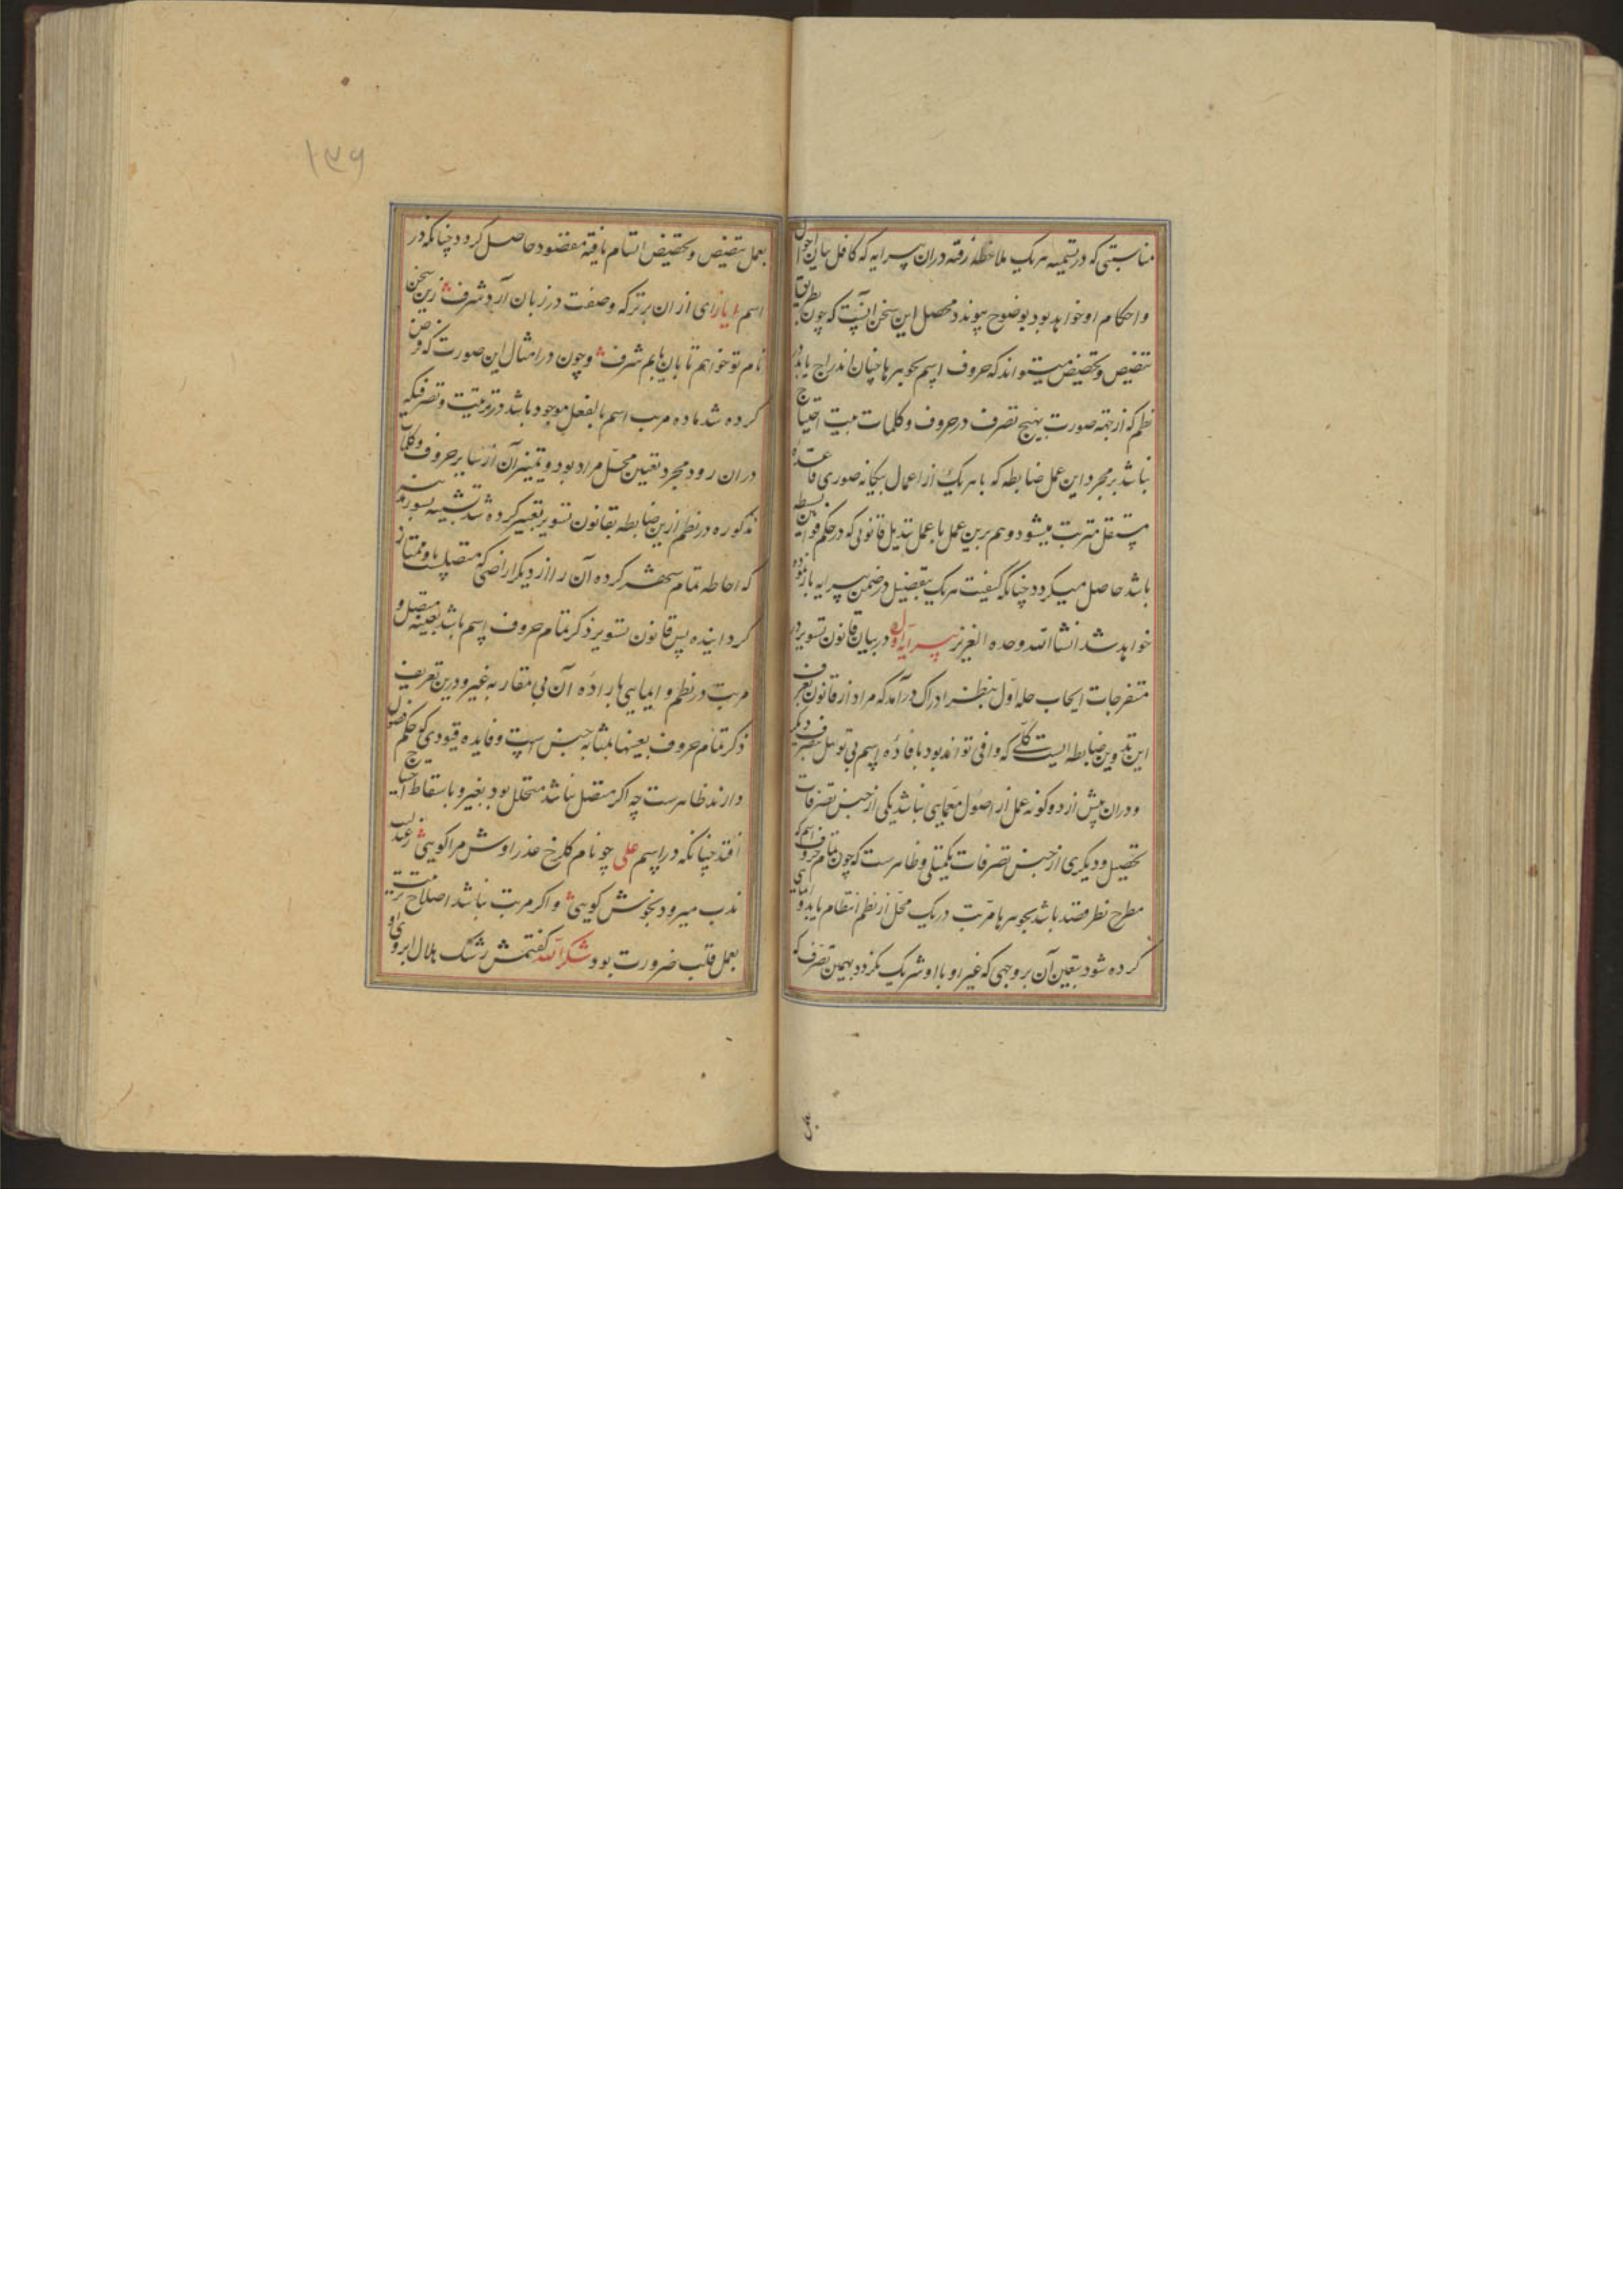 مناسبتی که در تسمیه هر یک ملاحظه رفته در ان پیرایه که کافل بیان احوال
و احکام او خواهد بود بوضوح پیوندد محصل این سخن انست که چون بطریق
تنصیص و تخصیص میتواند که حروف اسم بجوهرها چنان اندراج یابد در
نظم که از جهة صورت بهیچ تصرف در حروف و کلمات مبیت احتیاج
نباشد بر مجرد این عمل ضابطه که با هر یک از اعمال سکانه صوری قاعده
مستقل مترتب میشود و هم برین عمل با عمل تبدیل قانونی که در حکم قوانین بسیطه
باشد حاصل میکردد چنانکه کیفیت هر یک بتفصیل در ضمن پیرایه بازنموده
خواهد شد انشاالله وحده العزیز پیرایه اول در بیان قانون تسویر در
متفرجات ایجاب حله اول بنظر ادراک درآمد که مراد از قانون بعرف
این تدوین ضابطه ایست کلی که وافی تواند بود بافاده اسم بی توسل بتصرف دیگر
و در ان پیش از دو کونه عمل از اصول معمایی نباشد یکی از جنس تصرفات
تحصیل و دیکری از جنس تصرفات تکمیلی و ظاهرست که چون تمام حروف اسم که
مطرح نظر قصد باشد بجوهرها مرتب در یک محل از نظم انتظام یابد و ایمای
کرده شود بتعین آن بر وجهی که غیر او با او شریک نکردد بهمین تصرف که
۱۳۶
بعمل تنصیص و تخصیص اتسام یافته مقصود حاصل کردد چنانکه در
اسم ایاز ای از ان برتر که وصفت در زبان آرد شرف زین سخن
نام تو خواهم تا بان یابم شرف و چون در امثال این صورت که فرض
کرده شد ماده مرتب اسم بالفعل موجود باشد در بیت و تصرفیکه
در ان رود مجرد تعیین محل مراد بود و تمییز آن از سایر حروف و کلمات
مذکوره در نظم ازین ضابطه بقانون تسویر تعبیر کرده شد تشبیه بسور
که احاطه تمام شهر کرده آن را از دیکر اراضی که متصلست باو ممتاز
کرداینده پس قانون تسویر ذکر تمام حروف اسم باشد بعینه متصل و
مرتب در نظم و ایمایی باراده آن بی مقارنه غیر و درین تعریف
ذکر تمام حروف بعینها بمثابه جنس است و فایده قیودی که حکم فصول
دارند ظاهرست چه اکر متصل نباشد متخلل بود بغیر و باسقاط احتیاج
افتد چنانکه در اسم علی چو نام کلرخ عذرا وش مرا کویی ز عندلیب
ندب میرود بخوش کویی و اکر مرتب نباشد اصلاح ترتیب
بعمل قلب ضرورت بود شکرالله کفتمش رشک هلال ابروی او